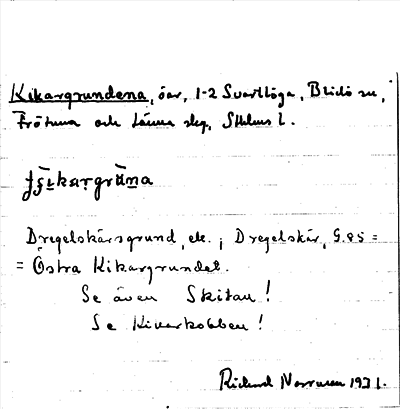 Kikargrundena, öar, 1-2 Svartlöga, Blidö sn,
Frötuna och Länna skg, Sthlms l.
Dregelskärsgrund, ek. ; Dregelskär, G.85 =
= Östra Kikargrundet.
Se även Skitan!
Se Kiverkobben!
Rickard Norman 1931.